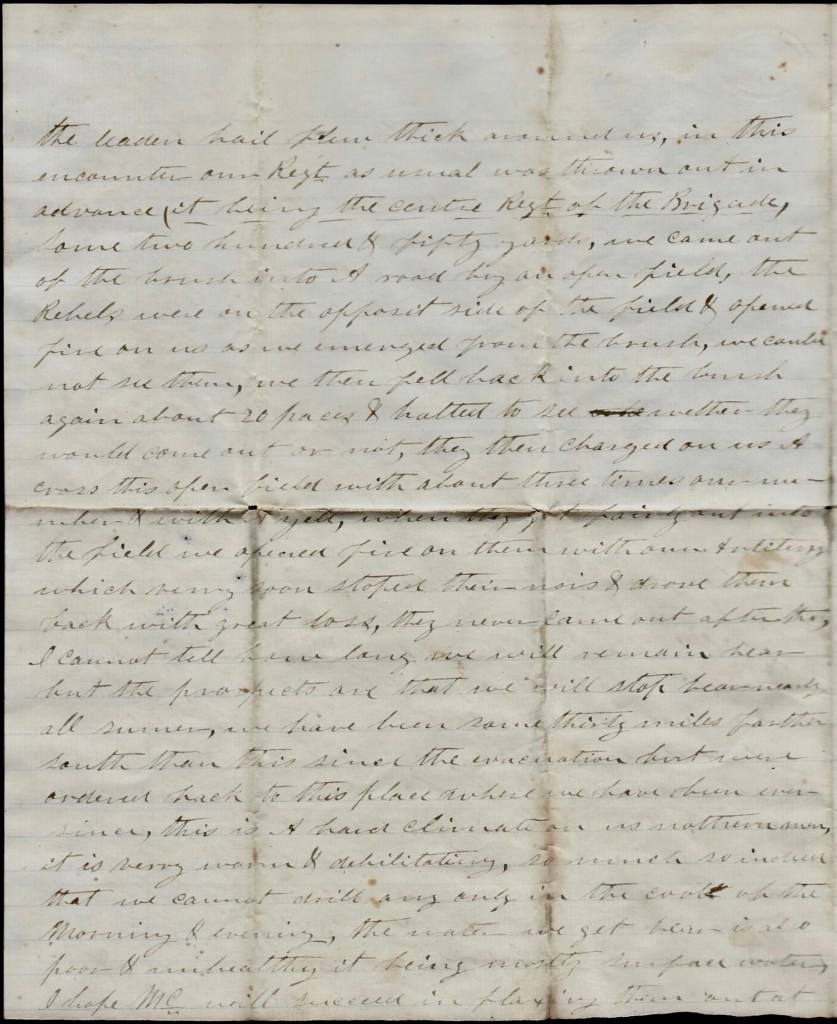 the leaden hail flew thick around us, in this
encounter our Regt as usual was thrown out in
advance, (it being the centre Regt of the Brigade,
some two hundred & fifty yards, we came out
of the brush into A road by an open field, the
Rebels were on the opposit side of the field & opened
fire on us as we emerged from the brush, we could
not see them, we then fell back into the brush
again about 20 paces & halted to see wether they
would come out or not, they then charged on us A
cross this open field with about three times our nu-
mber & with A yell, when they got fairly out into
the field we opened fire on them with our Artillery
which verry soon stoped their nois & drove them
back with great loss, they never came out after
I cannot tell how long we will remain hear
but the prospects are that we will stop hear nearly
all sumer, we have been some thirty miles farther
south than this since the evacuation but were
ordered back to this place where we have been ever
since, this is A hard climate on us nothern men,
it is verry warm & debilitating, so much so indeed
that we cannot drill any only in the cool of the
Morning & evening, the water we get hear is also
poor & unhealthy it being mostly surface water,
I hope Mc will succeed in them out at